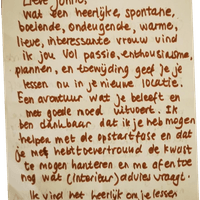 Lieve
Wat een heerlijke, spontane,
boeiende, ondeugende, warme,
lieve, interessante vrouw vind
ik jou. Vol passie, enthousiasme,
plannen, en toewijding geef je je
lessen nu in je nieuwe locatie.
Een avontuur wat je beleeft en
met goede moed uitvoert. Ik
ben dankbaar dat ik je heb mogen
helpen met de opstartfase en dat
je met hebt toevertrouwd de kwast
te mogen hanteren en me af en toe
nog wat (interieur) advies vraagt.
Ik vind het heerlijk om je lessen